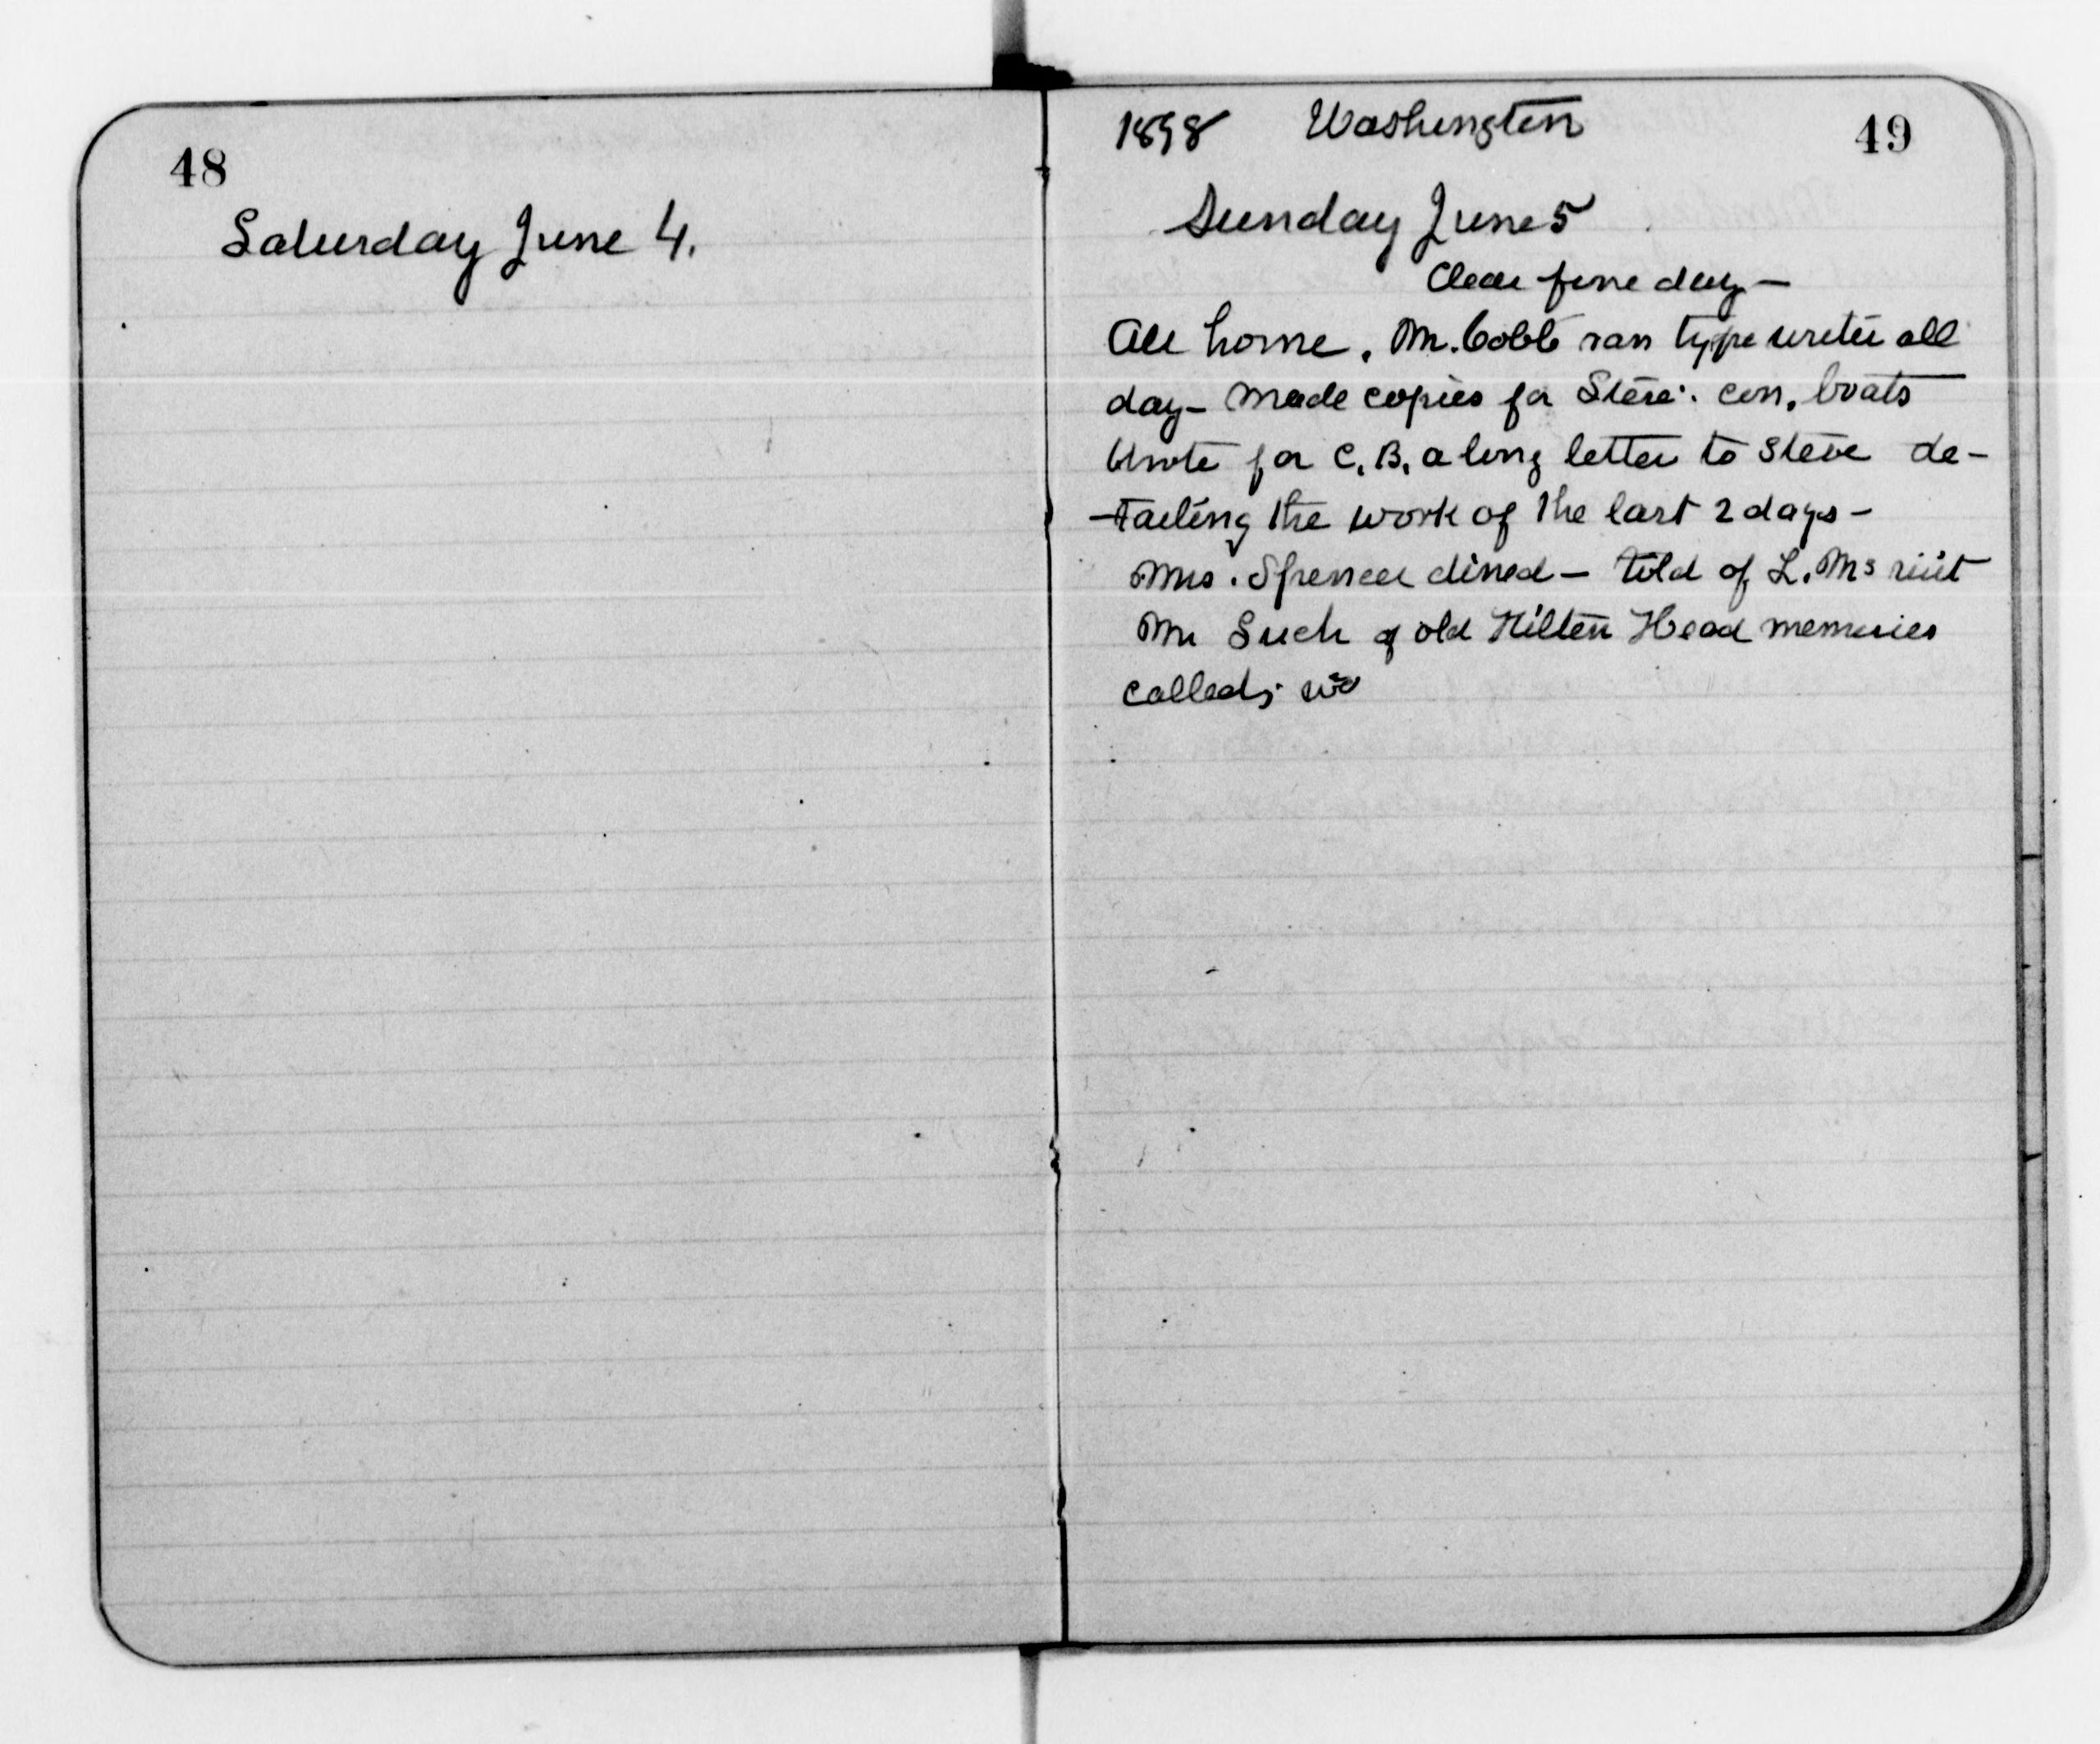 48
Saturday June 4.
1898 Washington 49
Sunday June 5
Clear fine day —
All home. Mr. Cobb ran type writer all
day — Made copies for Steve: con. boats
Wrote for C. B. a long letter to Steve de-
-tailing the work of the last 2 days —
Mrs. Spencer dined — told of L. Ms visit
Mr Such of old Hilton Head memories
called;